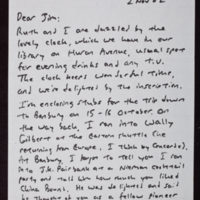 2 Nov 82
Dear Jim:
Ruth and I are dazzled by the
lovely clock, which we have in our
library on Huron Avenue, usual spot
for evening drinks and any t.v.
The clock keeps wonderful time,
and we're delighted by the inscription.
I'm enclosing stubs for the trip down
to Banbury on 15-16 October on
the way back, I ran into Wally
Gilbert at the Eastern shuttle (he
returning from Europe, I think by Concorde).
At Banbury, I forgot to tell you I ran
into J.K. Fairbank at a Nieman cocktail
party and told him how much you liked
China Bound. He was delighted and said
he thought of you as a fellow pioneer